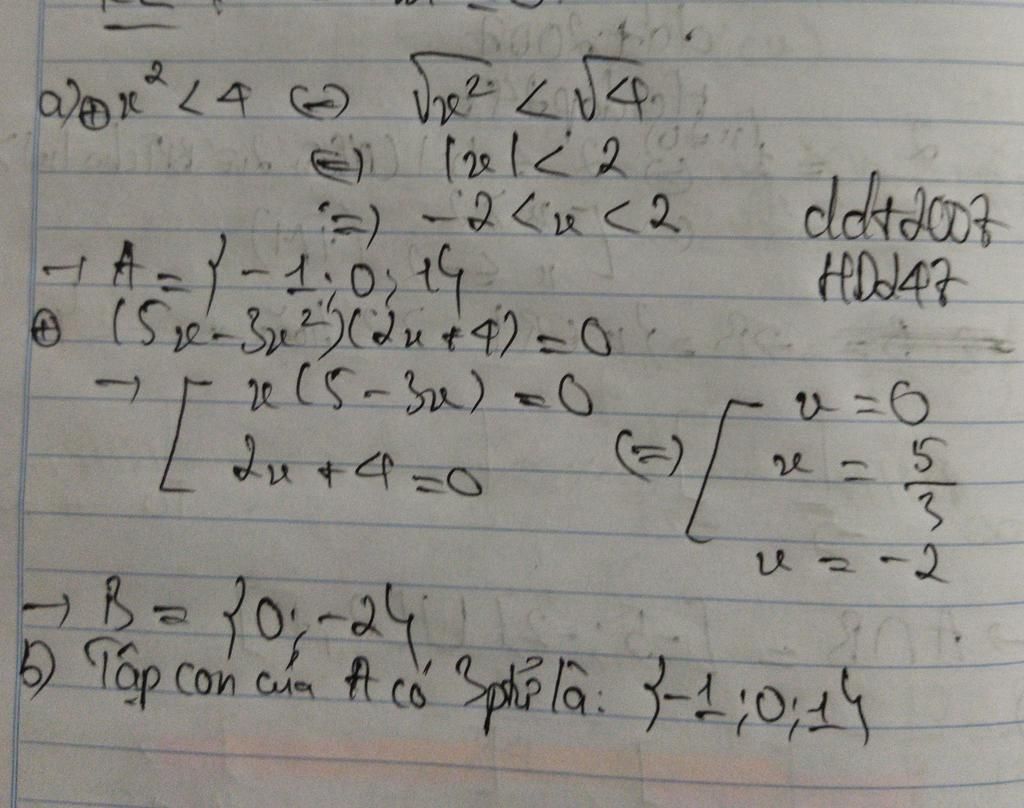 a) ⊕ x² < 4 (=) √x² < √4
(=) |x| < 2
(=) -2 < x < 2
→ A = {-1; 0; 1}
ddt2007
HDd47
⊕ (5x - 3x²)(2x + 4) = 0
→ [ x(5 - 3x) = 0
2x + 4 = 0
(=) [ x = 0
x = 5/3
x = -2
→ B = {0; -2}
b) Tập con của A có 3 ptử là: {-1; 0; 1}